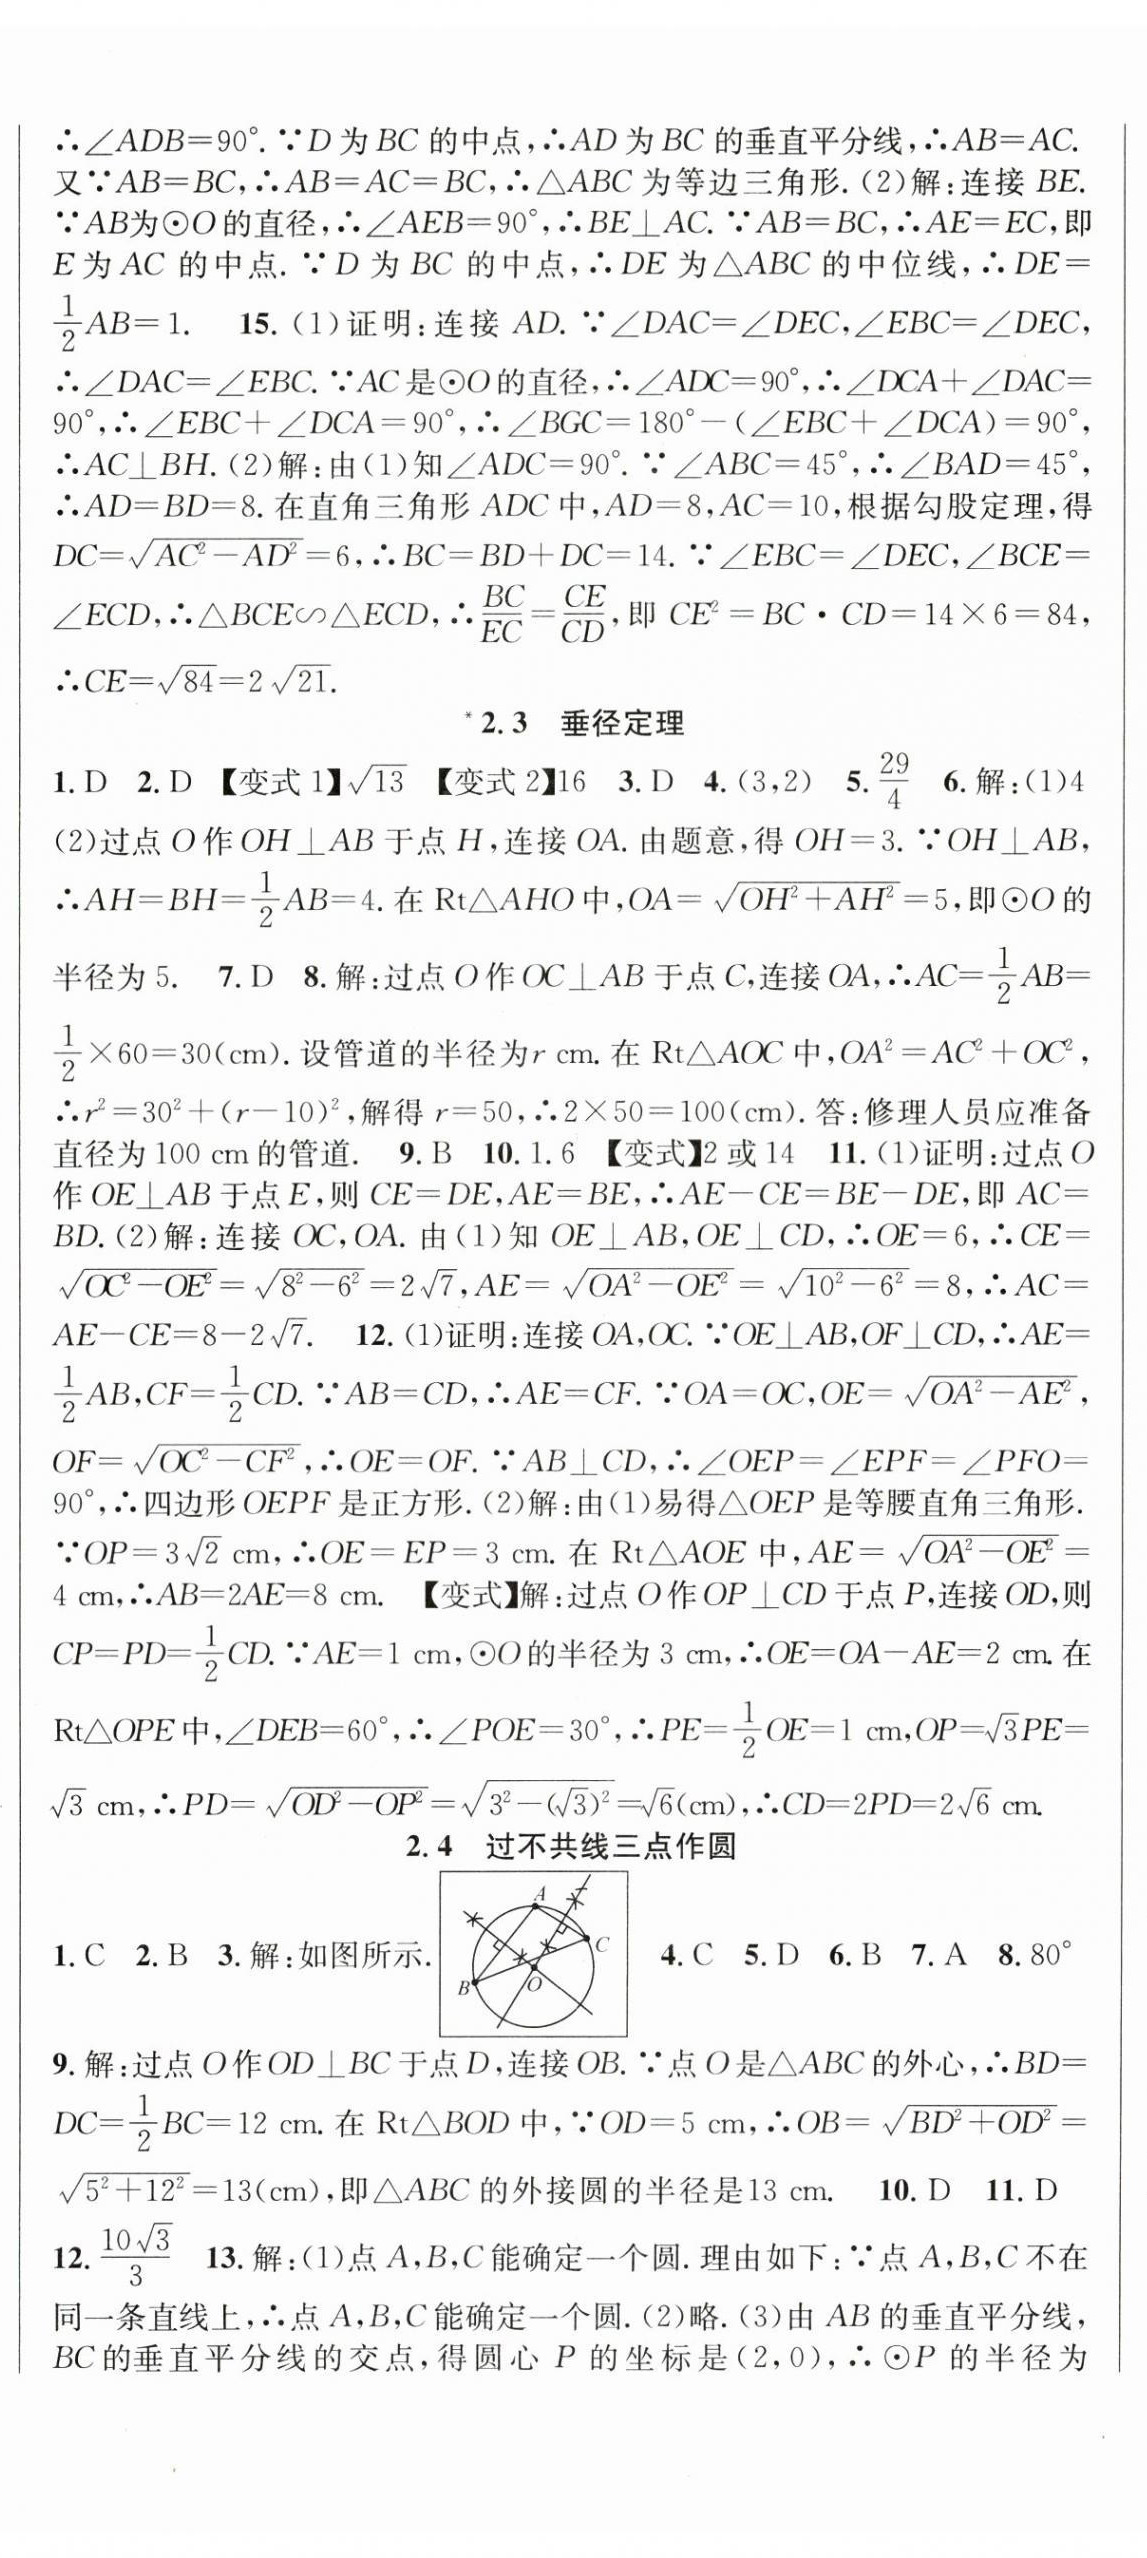 ∴∠ADB=90°.∵D为BC的中点,∴AD为BC的垂直平分线,∴AB=AC.
又∵AB=BC,∴AB=AC=BC,∴△ABC为等边三角形.(2)解:连接BE.
∵AB为⊙O的直径,∴∠AEB=90°,∴BE⊥AC.∵AB=BC,∴AE=EC,即
E为AC的中点.∵D为BC的中点,∴DE为△ABC的中位线,∴DE=
1/2AB=1. 15.(1)证明:连接AD.∵∠DAC=∠DEC,∠EBC=∠DEC,
∴∠DAC=∠EBC.∵AC是⊙O的直径,∴∠ADC=90°,∴∠DCA+∠DAC=
90°,∴∠EBC+∠DCA=90°,∴∠BGC=180°-(∠EBC+∠DCA)=90°,
∴AC⊥BH.(2)解:由(1)知∠ADC=90°.∵∠ABC=45°,∴∠BAD=45°,
∴AD=BD=8.在直角三角形ADC中,AD=8,AC=10,根据勾股定理,得
DC=√(AC²-AD²)=6,∴BC=BD+DC=14.∵∠EBC=∠DEC,∠BCE=
∠ECD,∴△BCE∽△ECD,∴BC/EC=CE/CD,即CE²=BC·CD=14×6=84,
∴CE=√84=2√21.
*2.3 垂径定理
1.D 2.D 【变式1】√13 【变式2】16 3.D 4.(3,2) 5.29/4 6.解:(1)4
(2)过点O作OH⊥AB于点H,连接OA.由题意,得OH=3.∵OH⊥AB,
∴AH=BH=1/2AB=4.在Rt△AHO中,OA=√(OH²+AH²)=5,即⊙O的
半径为5. 7.D 8.解:过点O作OC⊥AB于点C,连接OA,∴AC=1/2AB=
1/2×60=30(cm).设管道的半径为r cm.在Rt△AOC中,OA²=AC²+OC²,
∴r²=30²+(r-10)²,解得r=50,∴2×50=100(cm).答:修理人员应准备
直径为100 cm的管道. 9.B 10.1.6 【变式】2或14 11.(1)证明:过点O
作OE⊥AB于点E,则CE=DE,AE=BE,∴AE-CE=BE-DE,即AC=
BD.(2)解:连接OC,OA.由(1)知OE⊥AB,OE⊥CD,∴OE=6,∴CE=
√(OC²-OE²)=√(8²-6²)=2√7,AE=√(OA²-OE²)=√(10²-6²)=8,∴AC=
AE-CE=8-2√7. 12.(1)证明:连接OA,OC.∵OE⊥AB,OF⊥CD,∴AE=
1/2AB,CF=1/2CD.∵AB=CD,∴AE=CF.∵OA=OC,OE=√(OA²-AE²),
OF=√(OC²-CF²),∴OE=OF.∵AB⊥CD,∴∠OEP=∠EPF=∠PFO=
90°,∴四边形OEPF是正方形.(2)解:由(1)易得△OEP是等腰直角三角形.
∵OP=3√2 cm,∴OE=EP=3 cm.在Rt△AOE中,AE=√(OA²-OE²)=
4 cm,∴AB=2AE=8 cm. 【变式】解:过点O作OP⊥CD于点P,连接OD,则
CP=PD=1/2CD.∵AE=1 cm,⊙O的半径为3 cm,∴OE=OA-AE=2 cm.在
Rt△OPE中,∠DEB=60°,∴∠POE=30°,∴PE=1/2OE=1 cm,OP=√3PE=
√3 cm,∴PD=√(OD²-OP²)=√(3²-(√3)²)=√6(cm),∴CD=2PD=2√6 cm.
2.4 过不共线三点作圆
1.C 2.B 3.解:如图所示. A B C O 4.C 5.D 6.B 7.A 8.80°
9.解:过点O作OD⊥BC于点D,连接OB.∵点O是△ABC的外心,∴BD=
DC=1/2BC=12 cm.在Rt△BOD中,∵OD=5 cm,∴OB=√(BD²+OD²)=
√(5²+12²)=13(cm),即△ABC的外接圆的半径是13 cm. 10.D 11.D
12.10√3/3 13.解:(1)点A,B,C能确定一个圆.理由如下:∵点A,B,C不在
同一条直线上,∴点A,B,C能确定一个圆.(2)略.(3)由AB的垂直平分线,
BC的垂直平分线的交点,得圆心P的坐标是(2,0),∴⊙P的半径为